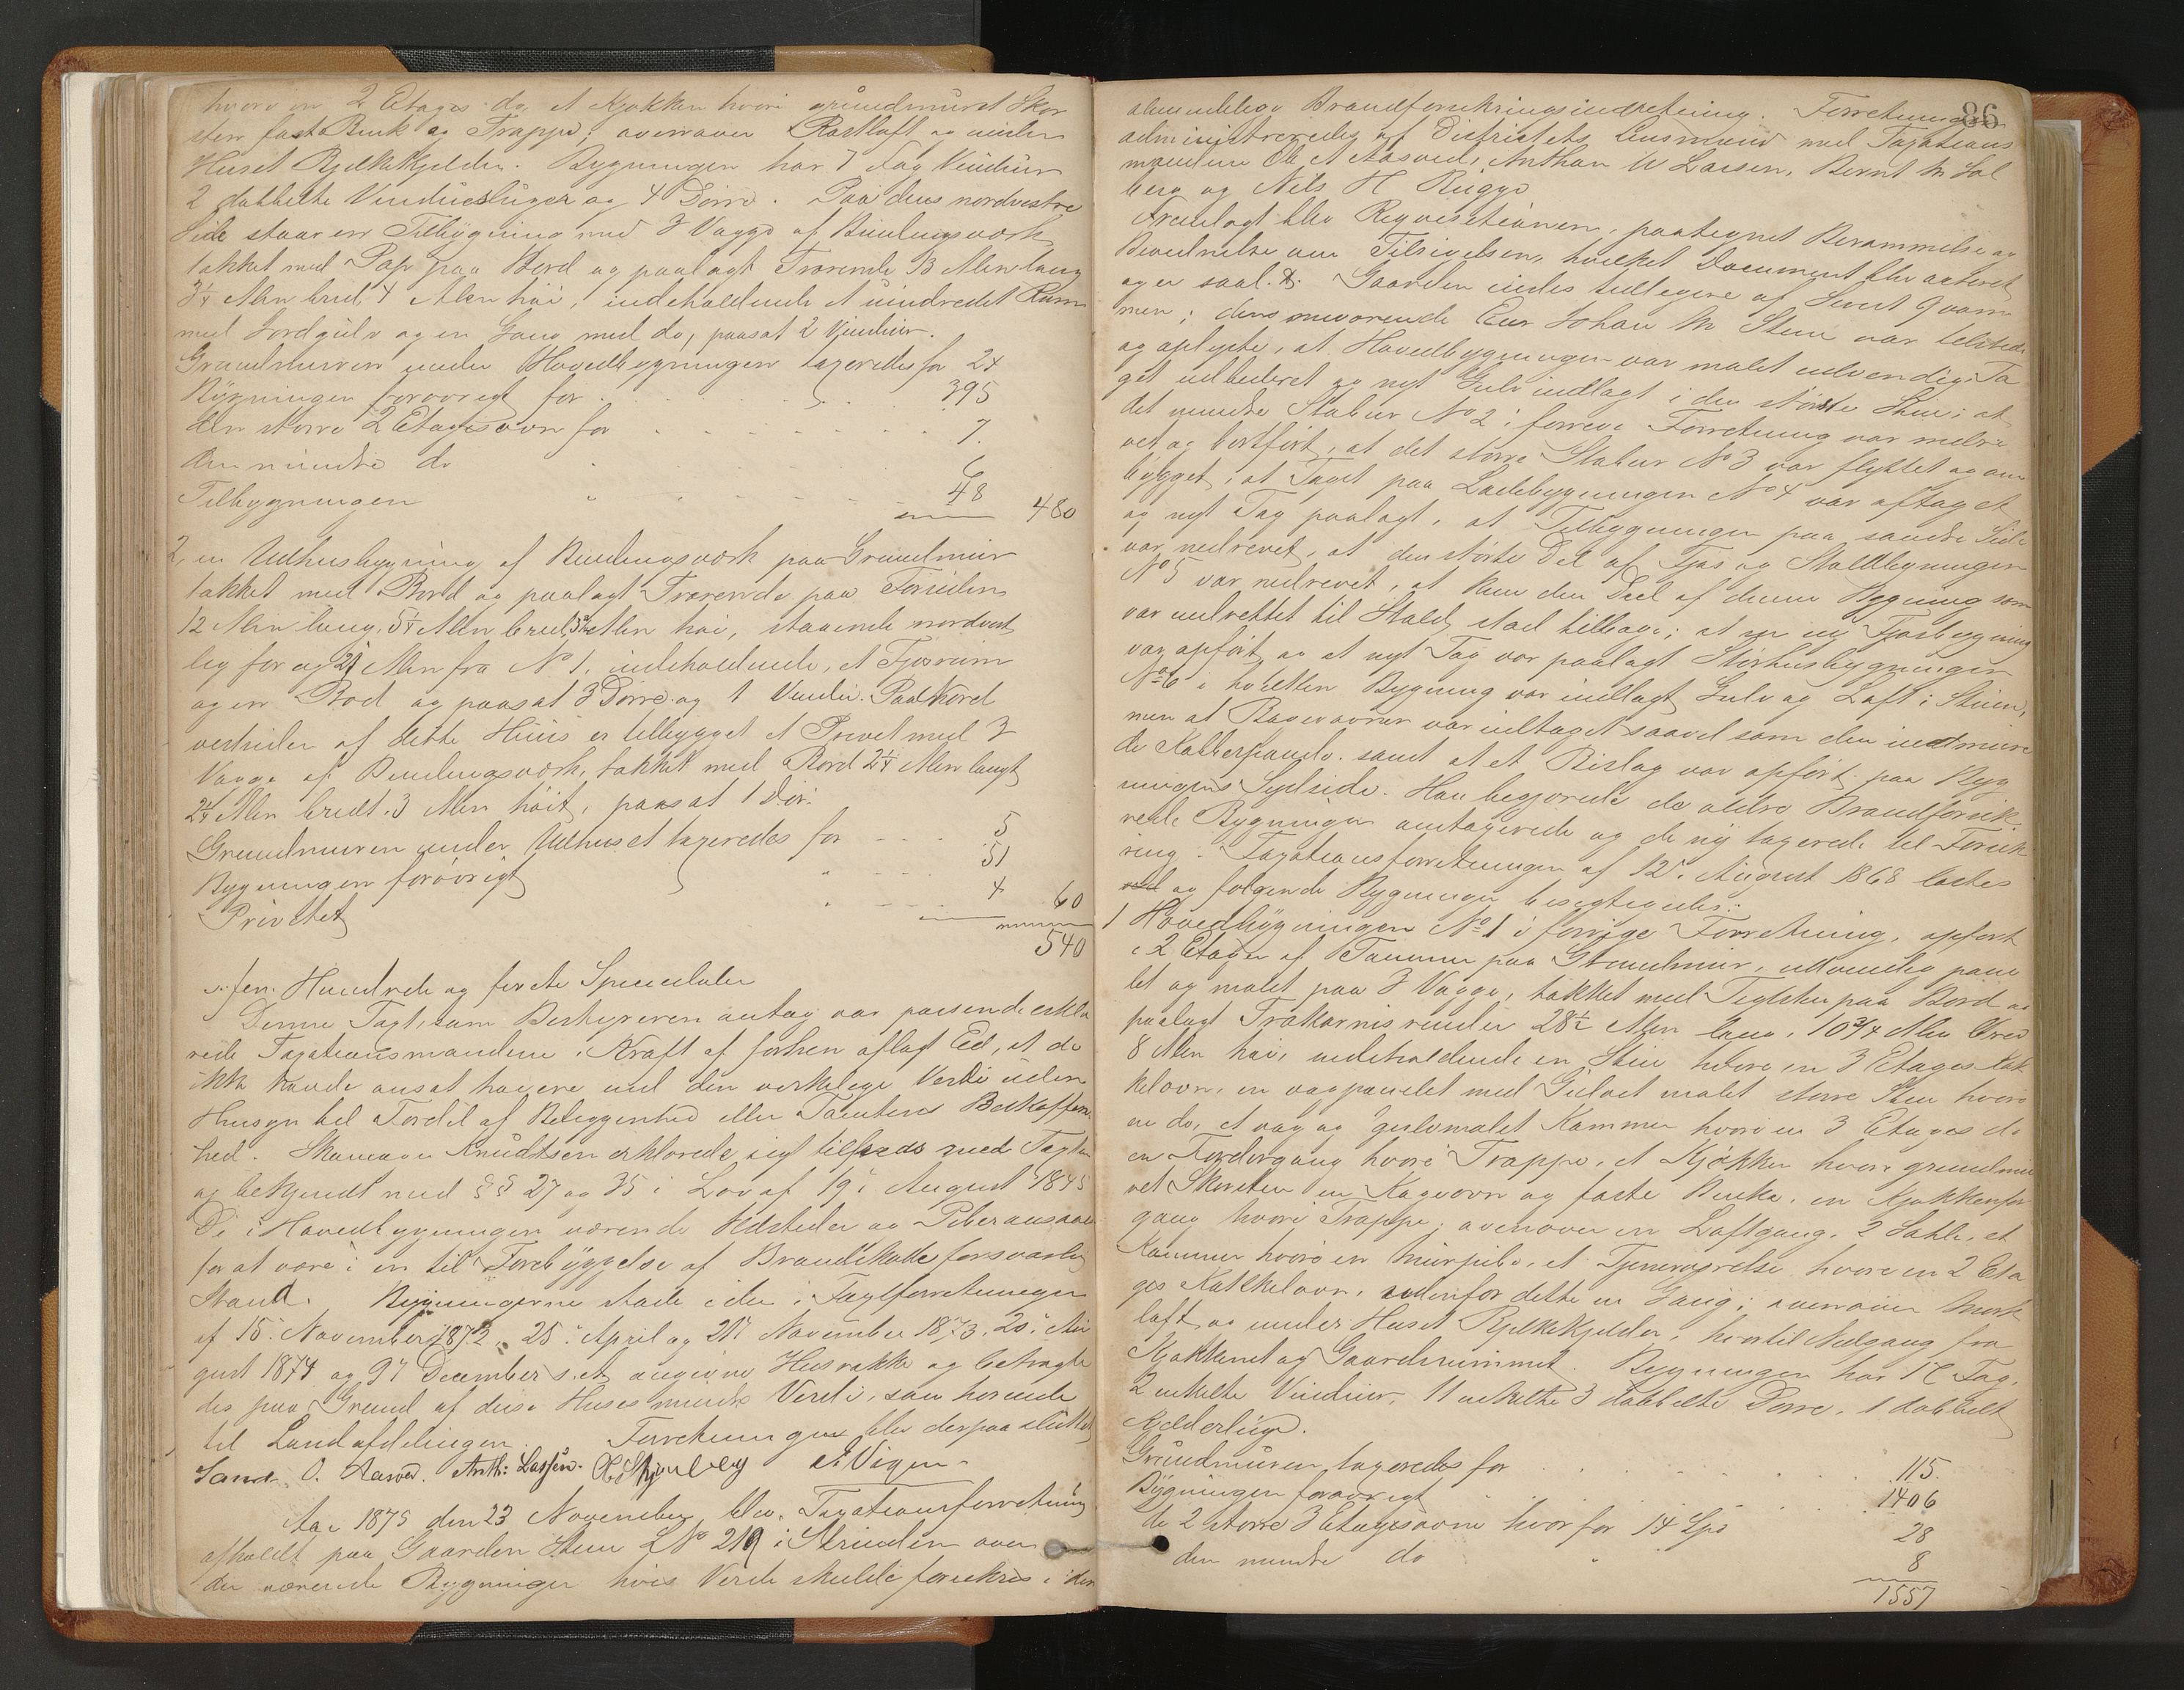 hvori en 2 Etages do, et Kjøkken hvori grundmuret Skor
sten fast Bænk og Trappe; ovenover Røstloft og under
Huset Bjelkekjelder. Bygningen har 7 Fag Vinduer
2 dobbelte Vindueslüger og 4 Dørre. Paa dens nordvestre
Side staar en Tilbygning med 3 Vægge af Bindingsværk
tækket med Pap paa Bord og paalagt Trærende 13 Alen lang
3¼ Alen bred 4 Alen høi, indeholdende et uindredet Rum
med Jordgulv og en Gang med do, paasat 2 Vinduer.
Grundmuren under Hovedbygningen taxeredes for 24
Bygningen forøvrigt for 395
den større 2 Etagesovn for 7
den mindre do " 6
Tilbygningen " 48 480
2, en Udhusbygning af Bindingsværk paa Grundmur
tækket med Bord og paalagt Trærende paa Forsiden
12 Alen lang, 5¼ Alen bred, Alen høi, staaende nordvest
lig for og 21 Alen fra No 1, indeholdende, et Fjøsrum
og en Bod og paasat 3 Dørre og 1 Vindu. Paa Nord
vestsiden af dette Huus er tilbygget et Privet med 3
Vægge af Bindingsværk, tækket med Bord 2¼ Alen langt
2¼ Alen bredt, 3 Alen høit, paasat 1 Dør.
Grundmuren under Udhuset taxeredes for 5
Bygningen forøvrigt " 51
Privetet " 4 60
540
fem Hundrede og firti Speciedaler
Denne Taxt, som Bestyreren antog var passende erklæ
rede Taxationsmændene i Kraft af forhen aflagt Eed, at de
ikke havde ansat høiere end den virkelige Værdi uden
Hensyn til Fordel af Beliggenhed eller Tomtens Beskaffen
hed. Skomager Knudtsen erklærede sig tilfreds med Taxten
og bekjendt med §§ 27 og 35 i Lov af 19de August 1845
De i Hovedbygningen værende Ildsteder og Piber ansaaes
for at være i en til Forebyggelse af Brandskade forsvarlig
Stand. Bygningerne stode i den i Taxtforretninger
af 15de November 1872, 25de April og 21de November 1873, 20de Au
gust 1874 og 9de December s. A. angivne Husrække og betragte
des paa Grund af disse Huses mindre Værdi, som hørende
til Landafdelingen. Forretningen blev derpaa sluttet
Sand. O. Aasved. Anth: Larsen.
Aar 1875 den 23 November blev Taxationsforretning
afholdt paa Gaarden Steen LNo 219 i Strinden over
de værende Bygninger hvis Værdi skulde forsikres i den
86
almindelige Brandforsikringsindretning. Forretningen
administreredes af Districtets Lensmand med Taxations
mændene Ole A Aasved, Anthon W Larsen, Bernt M Sol
berg og Nils H Bügge
Fremlagt blev Reqvisitionen, paategnet Berammelse og
Bevidnelse om Tilsigelsen, hvilket Document blev acteret
og er saal. &. Gaarden eiedes tidligere af Sivert Qvam
men; dens nuværende Eier Johan M Steen var tilstede
og oplyste, at Hovedbygningen var malet udvendig, Ta
get udbedret og nyt Gulv indlagt i den største Stue; at
det mindre Stabur No 2 i forrige Forretning var nedre
vet og bortført, at det større Stabur No 3 var flyttet og om
bygget, at Taget paa Ladebygningen No 4 var aftaget
og nyt Tag paalagt, at Tilbygningen paa søndre Side
var nedrevet, at den største Del af Fjøs og Staldbygningen
No 5 var nedrevet, at kun den Deel af denne Bygning som
var indrettet til Stald stod tilbage; at en ny Fjøsbygning
var opført og at nyt Tag var paalagt Størhusbygningen
No 6 i hvilken Bygning var indlagt Gulv og Loft i Stuen,
men at Bagerovnen var udtaget saavel som den indmure
de Kobberpande samt at et Bislag var opført paa Byg
ningens Sydside. Han begjærede de ældre Brandforsik
rede Bygninger omtaxerede og de ny taxerede til Forsik
ring. Taxationsforretningen af 12te August 1868 læstes
og følgende Bygninger besigtigedes:
1 Hovedbygningen No 1 i forrige Forretning, opført
i 2 Etager af Tømmer paa Grundmur, udvendig pane
let og malet paa 3 Vægge, tækket med Teglsten paa Bord og
paalagt Trækarnisrender 28½ Alen lang, 10¾ Alen bred
8 Alen høi, indeholdende en Stue hvori en 3 Etages Kak
kelovn, en vægpanelet med Gulvet malet større Stue hvori
en do, et væg og gulvmalet Kammer hvori en 3 Etages do
en Fordørgang hvori Trappe, et Kjøkken hvori grundmu
ret Skorsten en Kageovn og faste Bænke, en Kjøkkenfor
gang hvori Trappe; ovenover en Loftgang, 2 Sahle, et
Kammer hvori en Murpibe, et Tjenerværelse hvori en 2 Eta
ges Kakkelovn, udenfor dette en Gang; ovenover Mørk
loft og under Huset Bjelkekjelder, hvortil Nedgang fra
Kjøkkenet og Gaardsrummet. Bygningen har 18 Fag,
2 enkelte Vinduer, 11 enkelte 3 dobbelte Dørre, 1 dobbelt
Kjelderlüge.
Grundmuren taxeredes for 115
Bygningen forøvrigt 1406
de 2 større 3 Etagesovne hvorfor 14 Spd 28
den mindre do " 8
1557